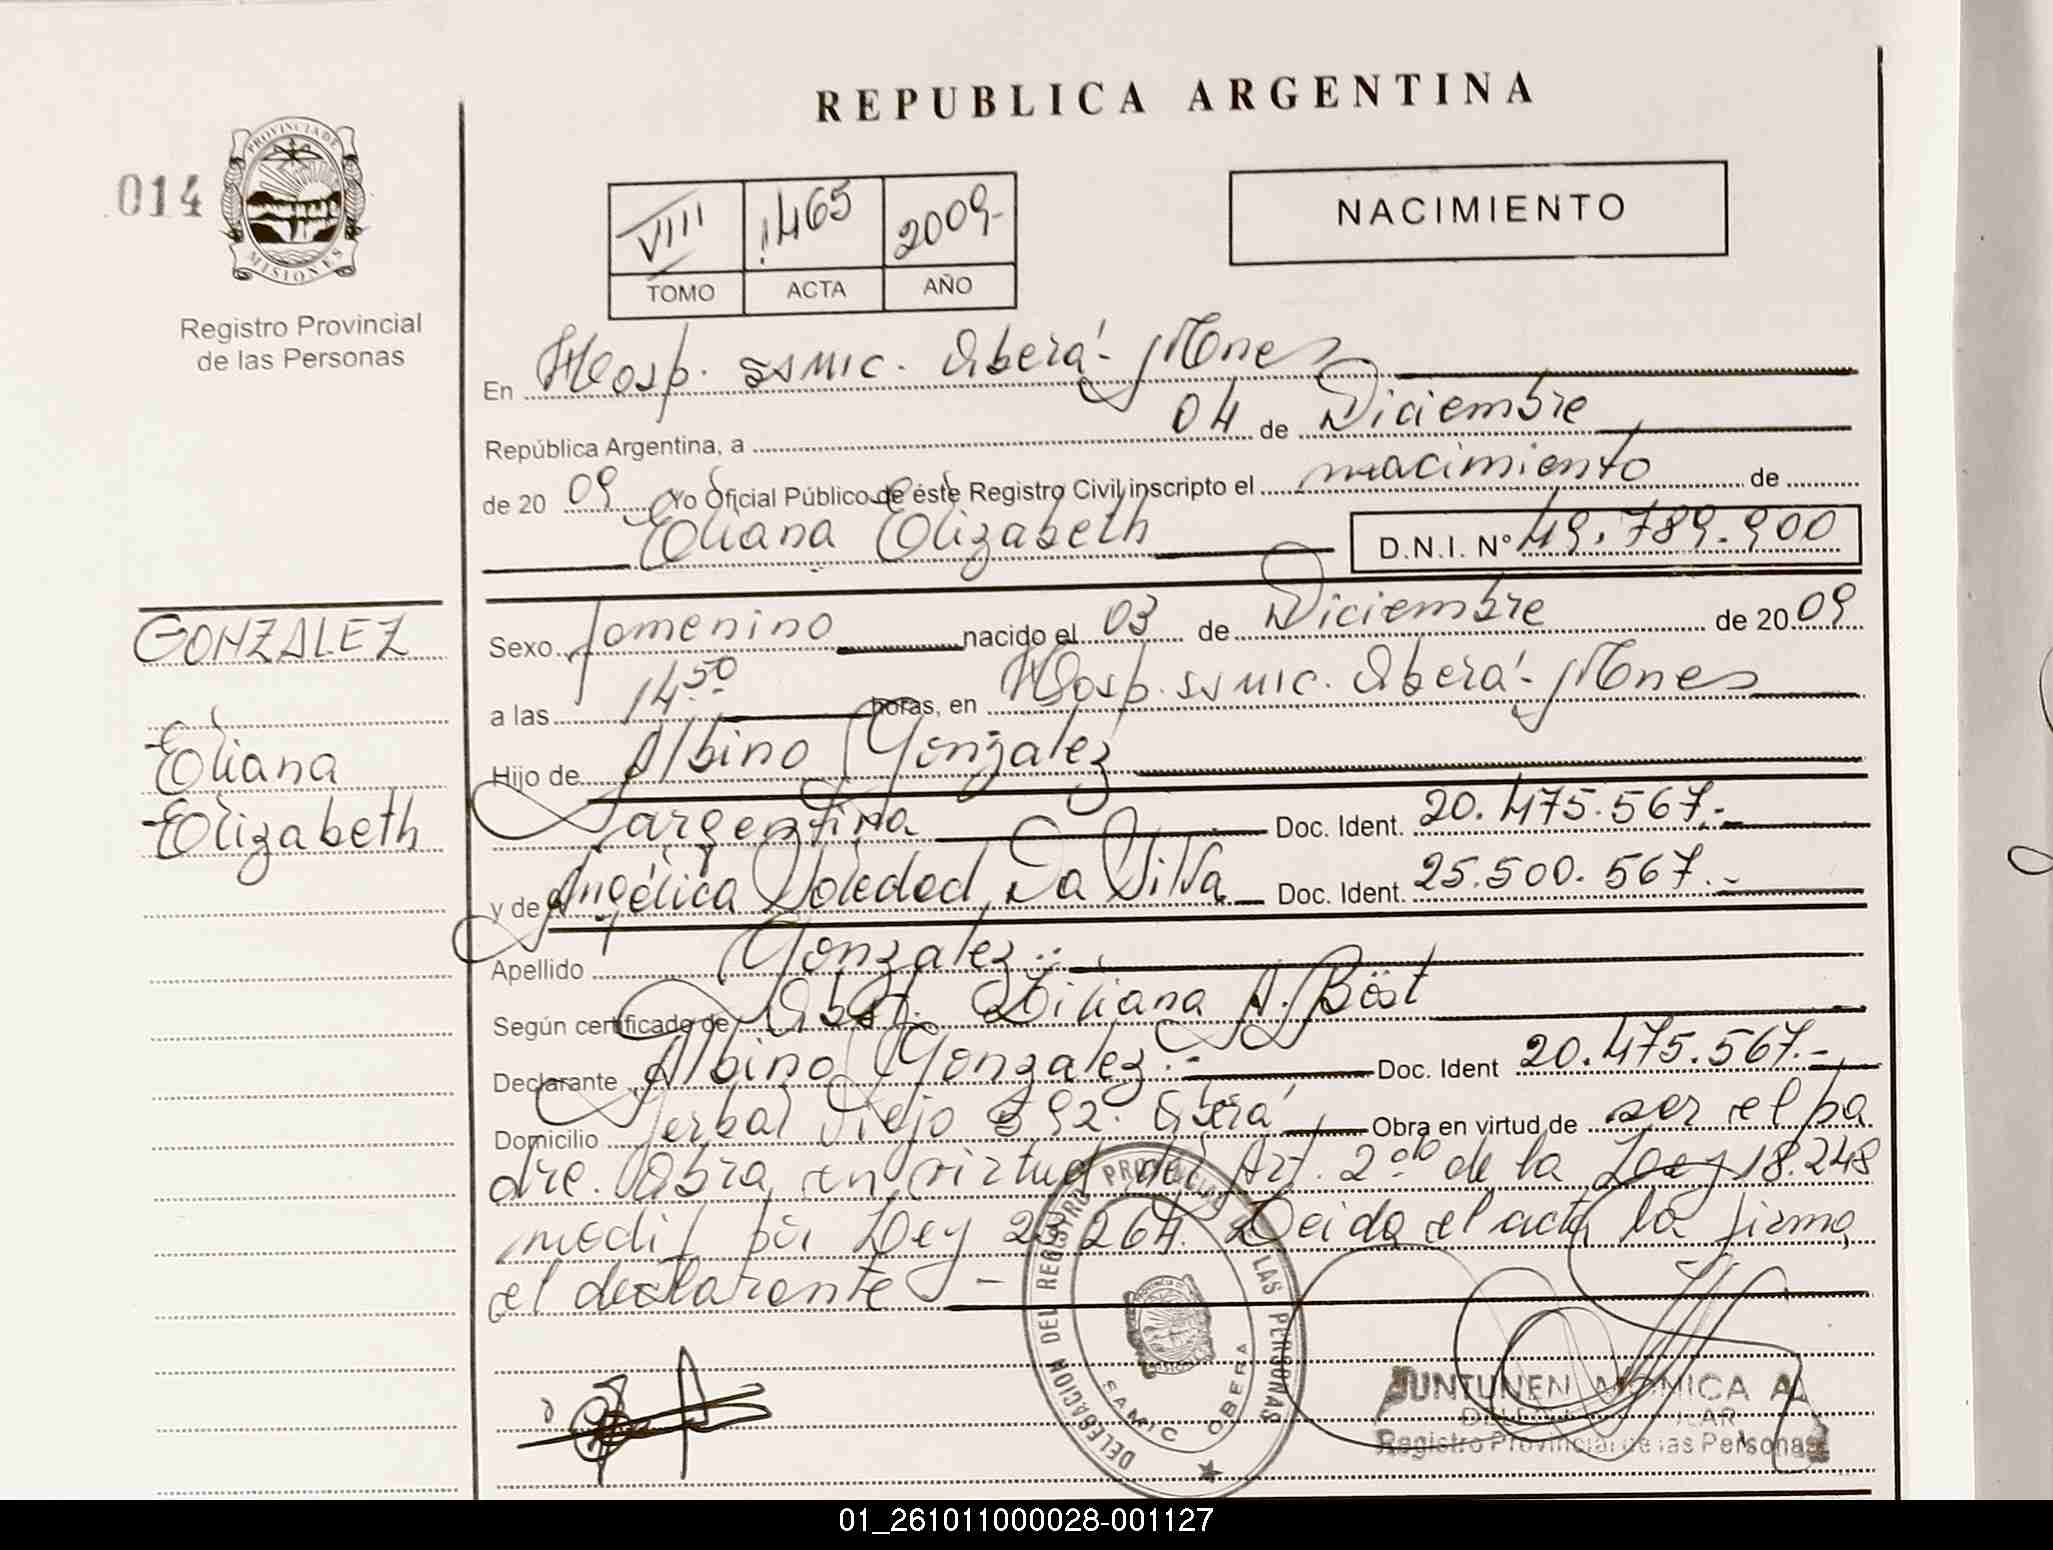 REPUBLICA ARGENTINA
014
PROVINCIA DE
MISIONES
Registro Provincial
de las Personas
NACIMIENTO
VIII 1465 2009-
TOMO ACTA AÑO
En Hosp. SSMIC. Oberá - Mnes
República Argentina, a 04 de Diciembre
de 20 09 Yo Oficial Público de éste Registro Civil inscripto el nacimiento de
Eliana Elizabeth D.N.I. N° 49.789.900
GONZALEZ
Eliana
Elizabeth
Sexo femenino nacido el 03 de Diciembre de 20 09
a las 14.50 horas, en Hosp. SSMIC. Oberá - Mnes
Hijo de Albino Gonzalez
argentina Doc. Ident. 20.475.567.-
y de Angélica Soledad Da Silva Doc. Ident. 25.500.567.-
Apellido Gonzalez.-
Según certificado de Obst. Liliana A. Böst
Declarante Albino Gonzalez.- Doc. Ident 20.475.567.-
Domicilio Yerbal Viejo 592. Oberá Obra en virtud de ser el pa
dre. Obra en virtud del Art. 2do de la Ley 18.248
modif por Ley 23.264. Leida el acta la firma,
el declarante -
DELEGACION DEL REGISTRO PROVINCIAL DE LAS PERSONAS
SAMIC OBERA
JUNTUNEN MONICA A.
Registro Provincial de las Personas
01_261011000028-001127